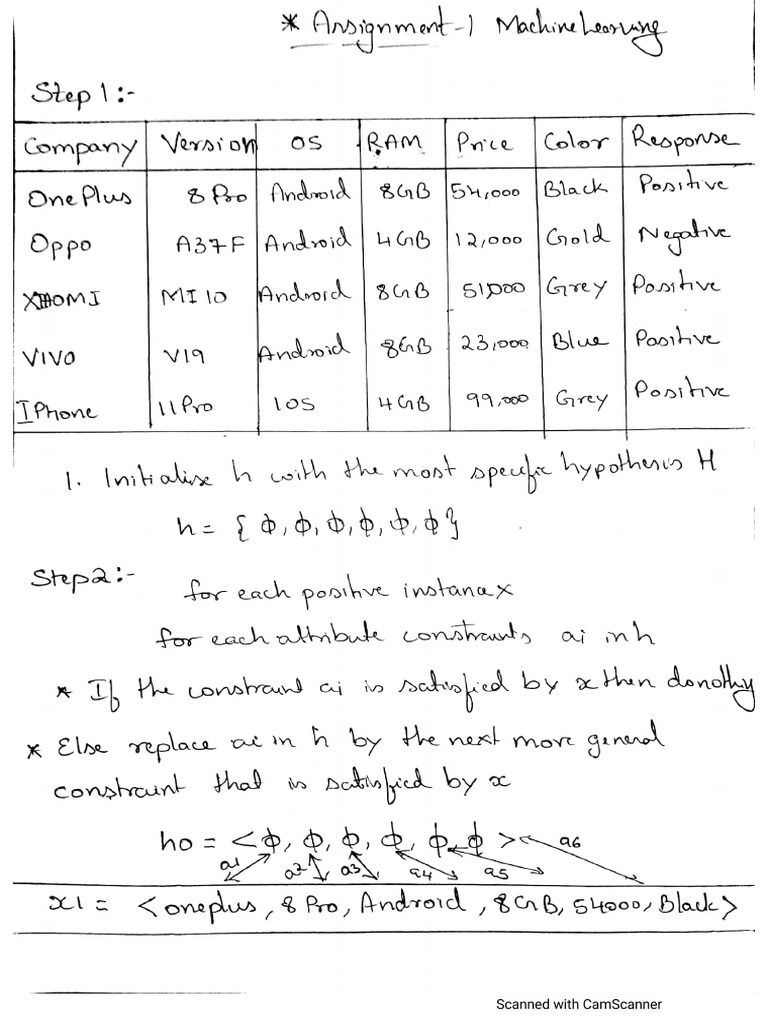 * Assignment-1 Machine Learning
Step 1:-
Company Version OS RAM Price Color Response
OnePlus 8 Pro Android 8GB 54,000 Black Positive
Oppo A37F Android 4GB 12,000 Gold Negative
XHOMI MI 10 Android 8GB 51,000 Grey Positive
VIVO V19 Android 8GB 23,000 Blue Positive
IPhone 11 Pro IOS 4GB 99,000 Grey Positive
1. Initialise h with the most specific hypothesis H
h = { Φ, Φ, Φ, Φ, Φ, Φ }
Step 2:- for each positive instance x
for each attribute constraints ai in h
* If the constraint ai is satisfied by x then donothg
* Else replace ai in h by the next more general
constraint that is satisfied by x
ho = < Φ, Φ, Φ, Φ, Φ, Φ >
a1 a2 a3 a4 a5 a6
x1 = <oneplus, 8 Pro, Android, 8GB, 54000, Black>
Scanned with CamScanner